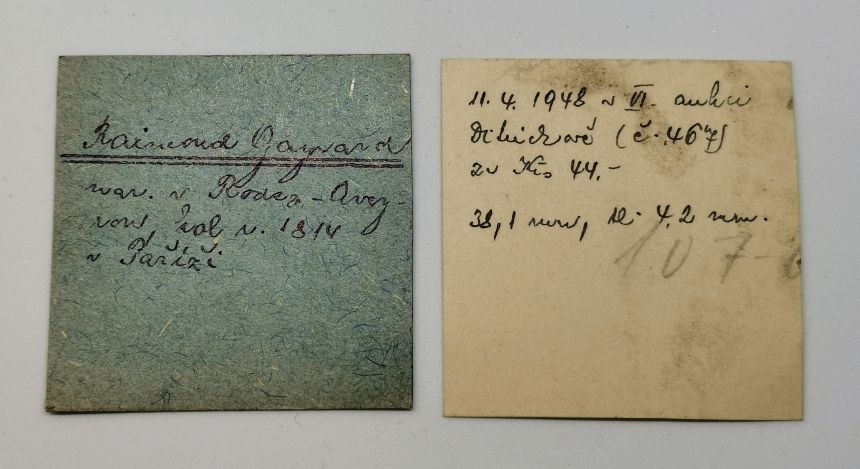 Raimond Gayrard
nar. v Rodez-Avey-
ron, žol v. 1814
v Paříži
11. 4. 1948 v VI. aukci
(č. 467)
za Kčs 44.-
38,1 mm, tl. 4,2 mm.
107-